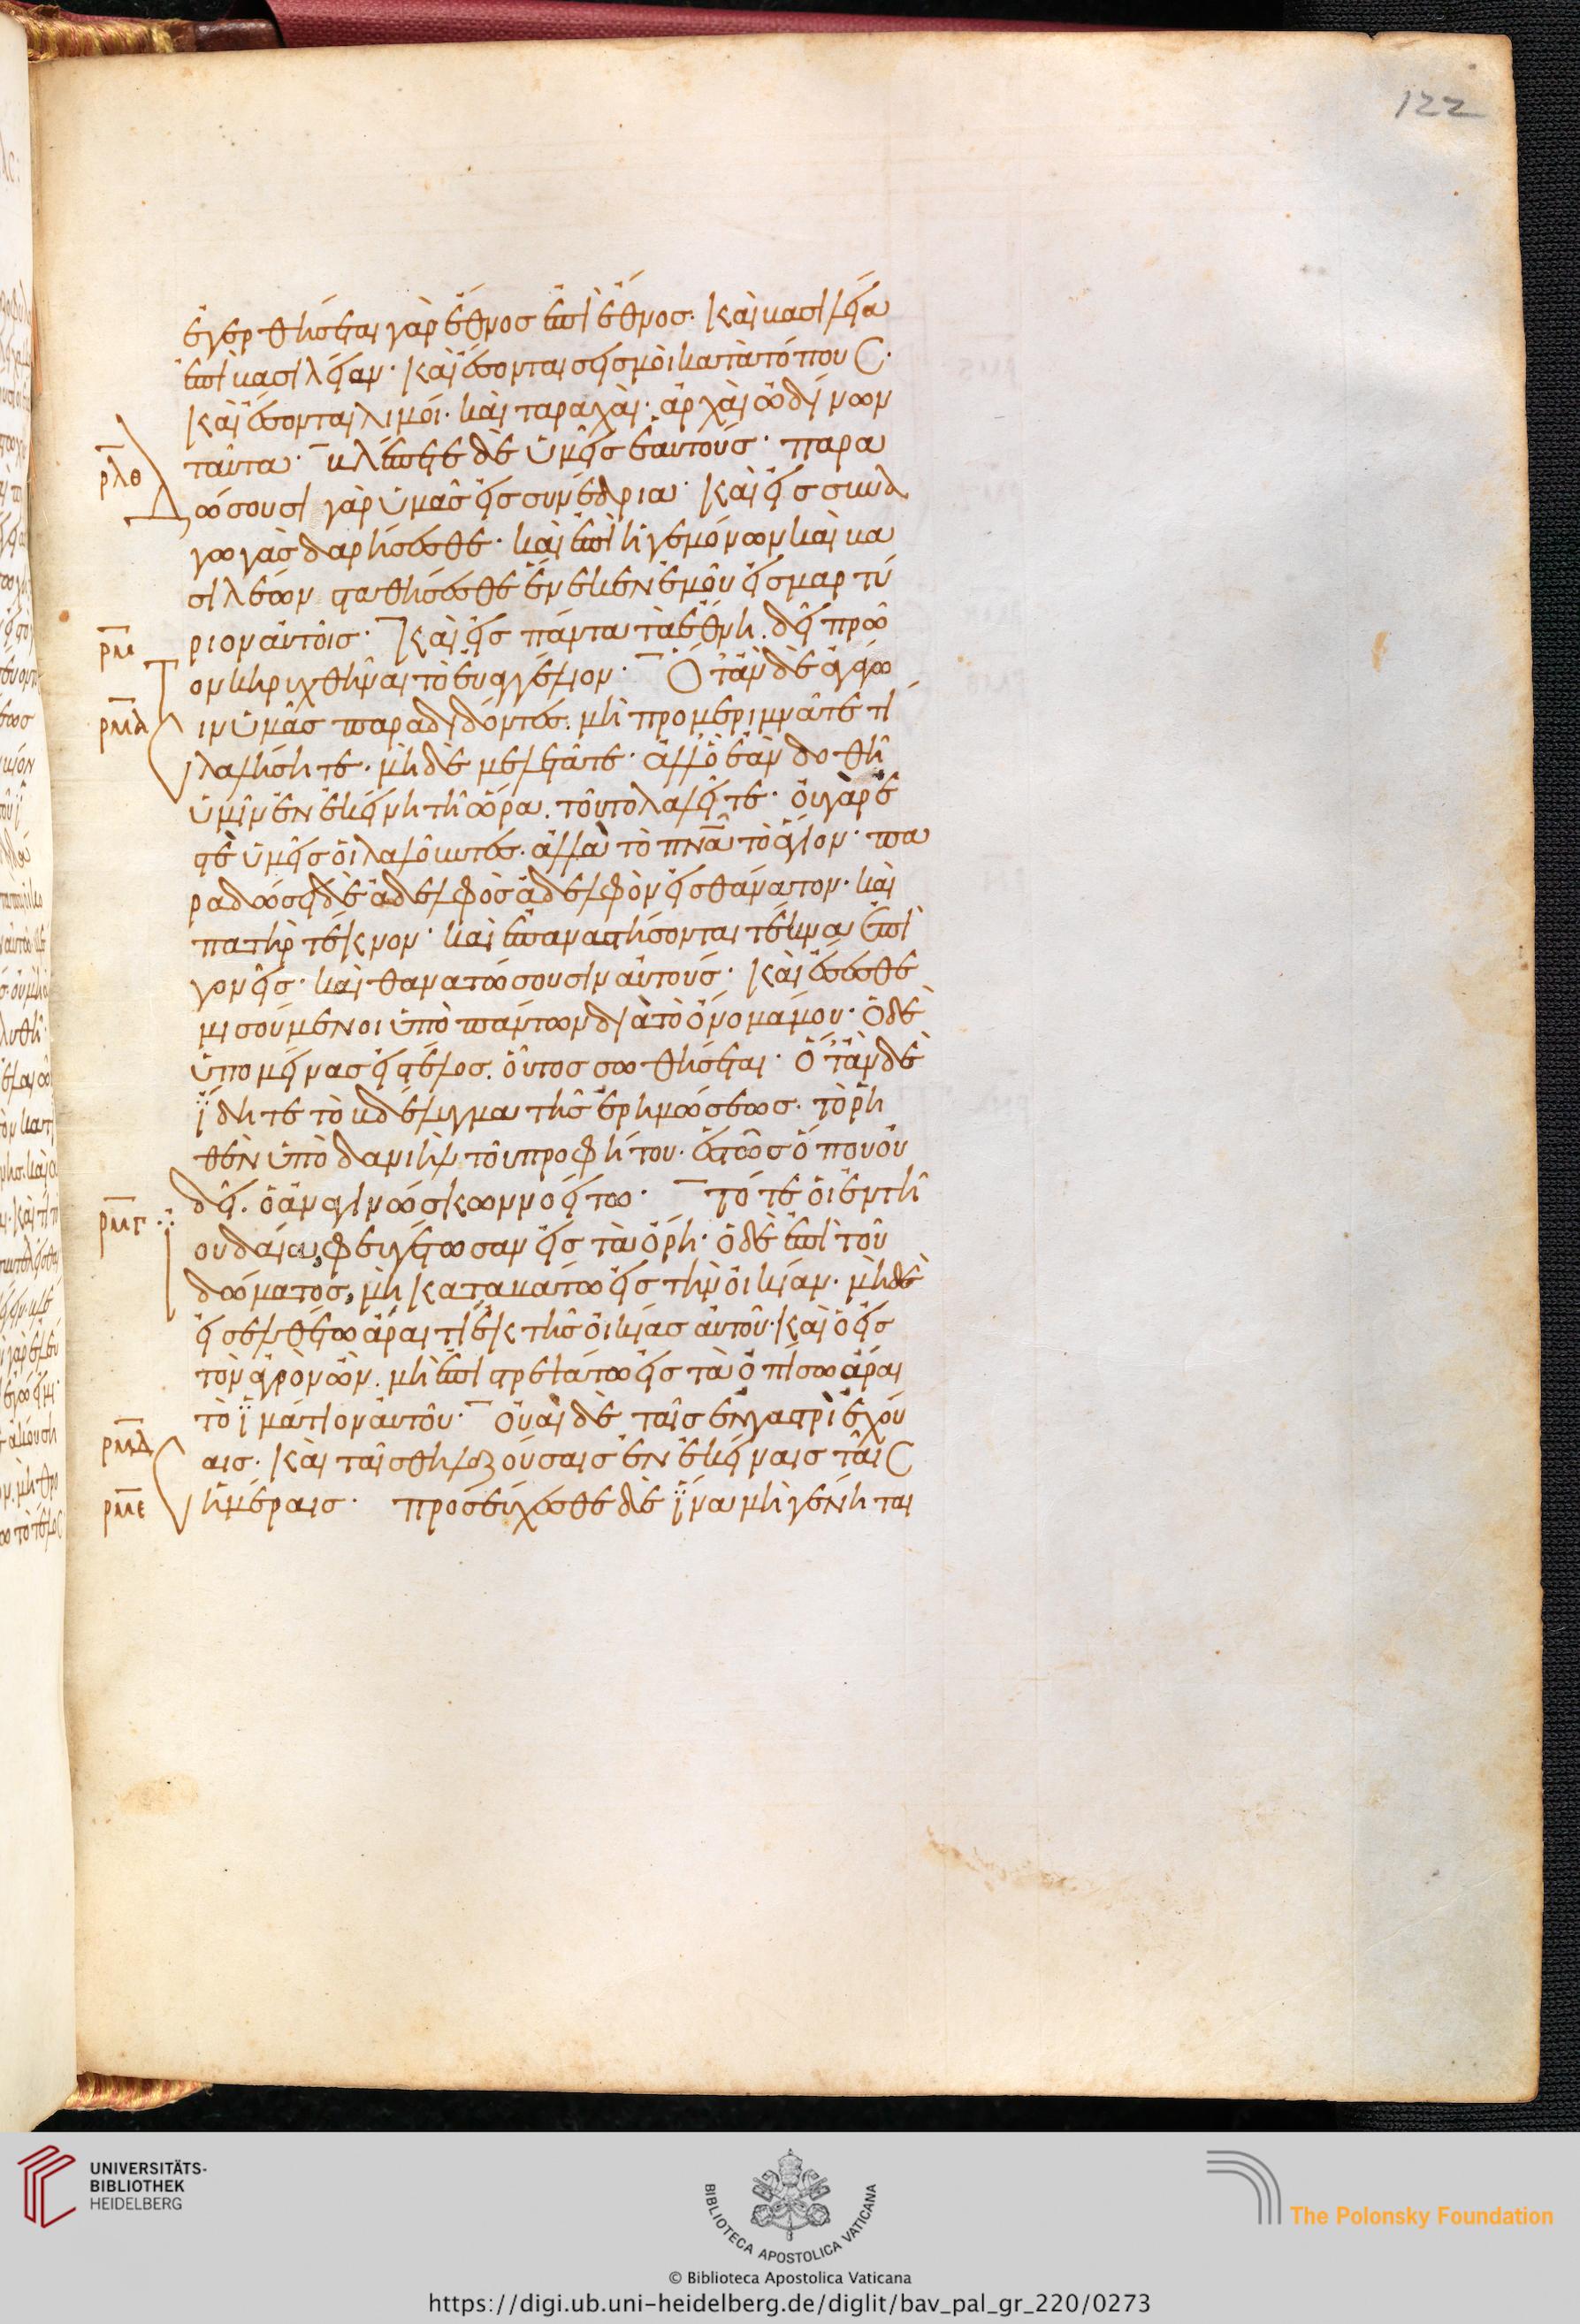 122
ἐγερθήσεται γὰρ ἔθνος ἐπὶ ἔθνος· καὶ βασιλεία
ἐπὶ βασιλείαν· καὶ ἔσονται σεισμοὶ κατὰ τόπους·
καὶ ἔσονται λιμοί· καὶ ταραχαὶ· ἀρχαὶ ὠδίνων
ρλθ ταῦτα· βλέπετε δὲ ὑμεῖς ἑαυτούς· παρα
δώσουσι γὰρ ὑμᾶς εἰς συνέδρια· καὶ εἰς συνα
γωγὰς δαρήσεσθε· καὶ ἐπὶ ἡγεμόνων καὶ βα
σιλέων σταθήσεσθε ἕνεκεν ἐμοῦ εἰς μαρτύ
ρμ ριον αὐτοῖς· καὶ εἰς πάντα τὰ ἔθνη. δεῖ πρῶ
ον κηρυχθῆναι τὸ εὐαγγέλιον· Ὅταν δὲ ἀγάγω
ρμα ιν ὑμᾶς παραδιδόντες. μὴ προμεριμνᾶτε τί
λαλήσητε· μὴ δὲ μελετᾶτε· ἀλλ ὃ ἐὰν δοθῆ
ὑμῖν ἐν ἐκείνη τῆ ὥρα. τοῦτο λαλεῖτε· οὐ γὰρ ἐ
στὲ ὑμεῖς οἱ λαλοῦντες. ἀλλὰ τὸ πνᾶ τὸ ἅγιον· πα
ραδώσει δὲ ἀδελφὸς ἀδελφὸν εἰς θάνατον· καὶ
πατὴρ τέκνον· καὶ ἐπαναστήσονται τέκνα ἐπὶ
γονεῖς· καὶ θανατώσουσιν αὐτούς· καὶ ἔσεσθε
μισούμενοι ὑπὸ πάντων διὰ τὸ ὄνομά μου· ὁ δὲ
ὑπομείνας εἰς τέλος. οὗτος σωθήσεται· Ὅταν δὲ
ἴδητε τὸ βδέλυγμα τῆς ἐρημώσεως. τὸ ῥη
θὲν ὑπὸ δανιὴλ τοῦ προφήτου. ἑστὼς ὅπου οὐ
ρμγ δεῖ. ὁ ἀναγινώσκων νοείτω· τότε οἱ ἐν τῆ
ουδαία, φευγέτωσαν εἰς τὰ ὄρη· ὁ δὲ ἐπὶ τοῦ
δώματος, μὴ καταβάτω εἰς τὴν οἰκίαν· μὴ δὲ
εἰσελθέτω ἆραι τι ἐκ τῆς οἰκίας αὐτοῦ· καὶ ὁ εἰς
τὸν ἀγρὸν ὢν. μὴ ἐπιστρεψάτω εἰς τὰ ὀπίσω ἆραι
τὸ ἱμάτιον αὐτοῦ· Οὐαὶ δὲ ταῖς ἐν γαστρὶ ἐχού
ρμδ αις· καὶ ταῖς θηλαζούσαις ἐν ἐκείναις ταῖς
ρμε ἡμέραις· προσεύχεσθε δὲ ἵνα μὴ γένηται
UNIVERSITÄTS-
BIBLIOTHEK
HEIDELBERG
BIBLIOTECA APOSTOLICA VATICANA
The Polonsky Foundation
© Biblioteca Apostolica Vaticana
https://digi.ub.uni-heidelberg.de/diglit/bav_pal_gr_220/0273